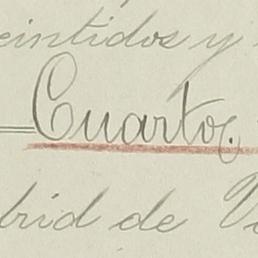 eintidos y
Cuarto.
drid de